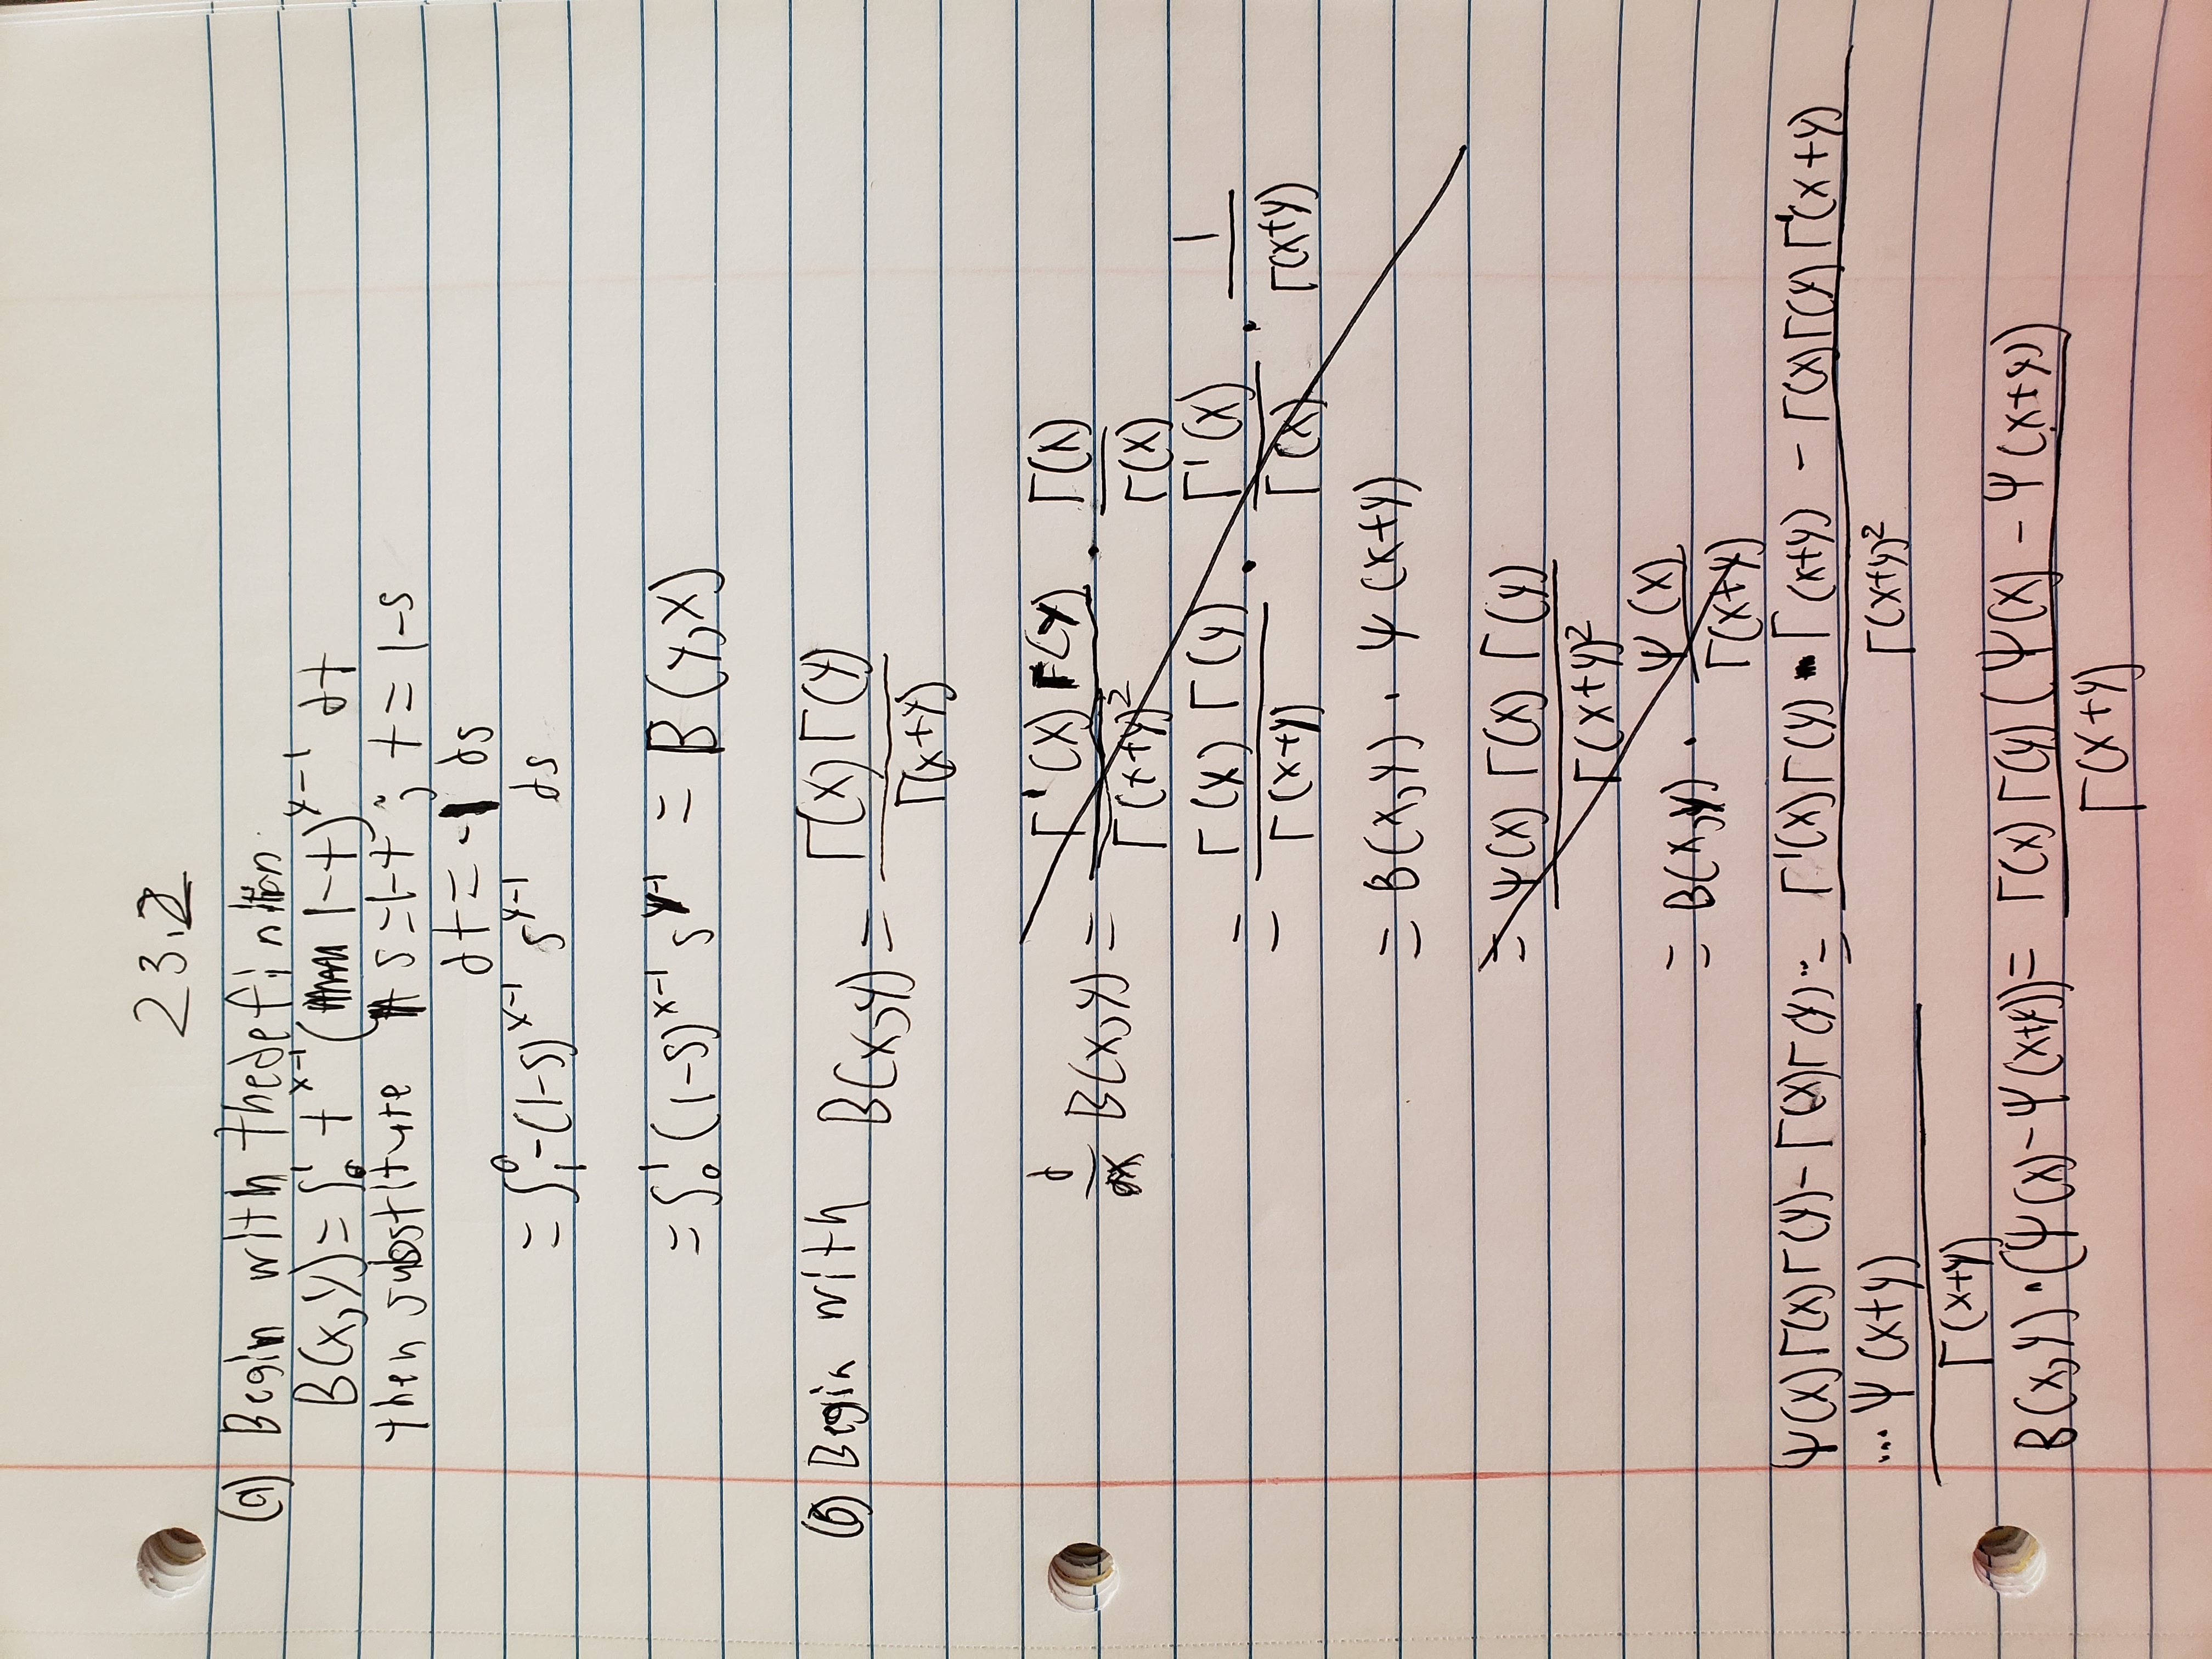 23.2
(a) Begin with the definition
B(x,y) = ∫₀¹ t^(x-1) (1-t)^(y-1) dt
then substitute s=1-t ; t = 1-s
dt = -1 ds
= ∫₁⁰ -(1-s)^(x-1) s^(y-1) ds
= ∫₀¹ (1-s)^(x-1) s^(y-1) = B(y,x)
(b) Begin with B(x,y) = Γ(x)Γ(y) / Γ(x+y)
d/dx B(x,y) = Γ'(x) Γ(y) / Γ(x+y)² · Γ(x) / Γ(x)
= Γ(x) Γ(y) / Γ(x+y) · Γ'(x) / Γ(x) · 1 / Γ(x+y)
= B(x,y) · Ψ(x+y)
= Ψ(x) Γ(x) Γ(y) / Γ(x+y)²
= B(x,y) · Ψ(x) / Γ(x+y)
Ψ(x)Γ(x)Γ(y) - Γ(x)Γ(y)... = Γ'(x)Γ(y) Γ(x+y) - Γ(x)Γ(y)Γ'(x+y) / Γ(x+y)²
...Ψ(x+y) / Γ(x+y)
B(x,y)·(Ψ(x)-Ψ(x+y)) = Γ(x)Γ(y)(Ψ(x) - Ψ(x+y)) / Γ(x+y)